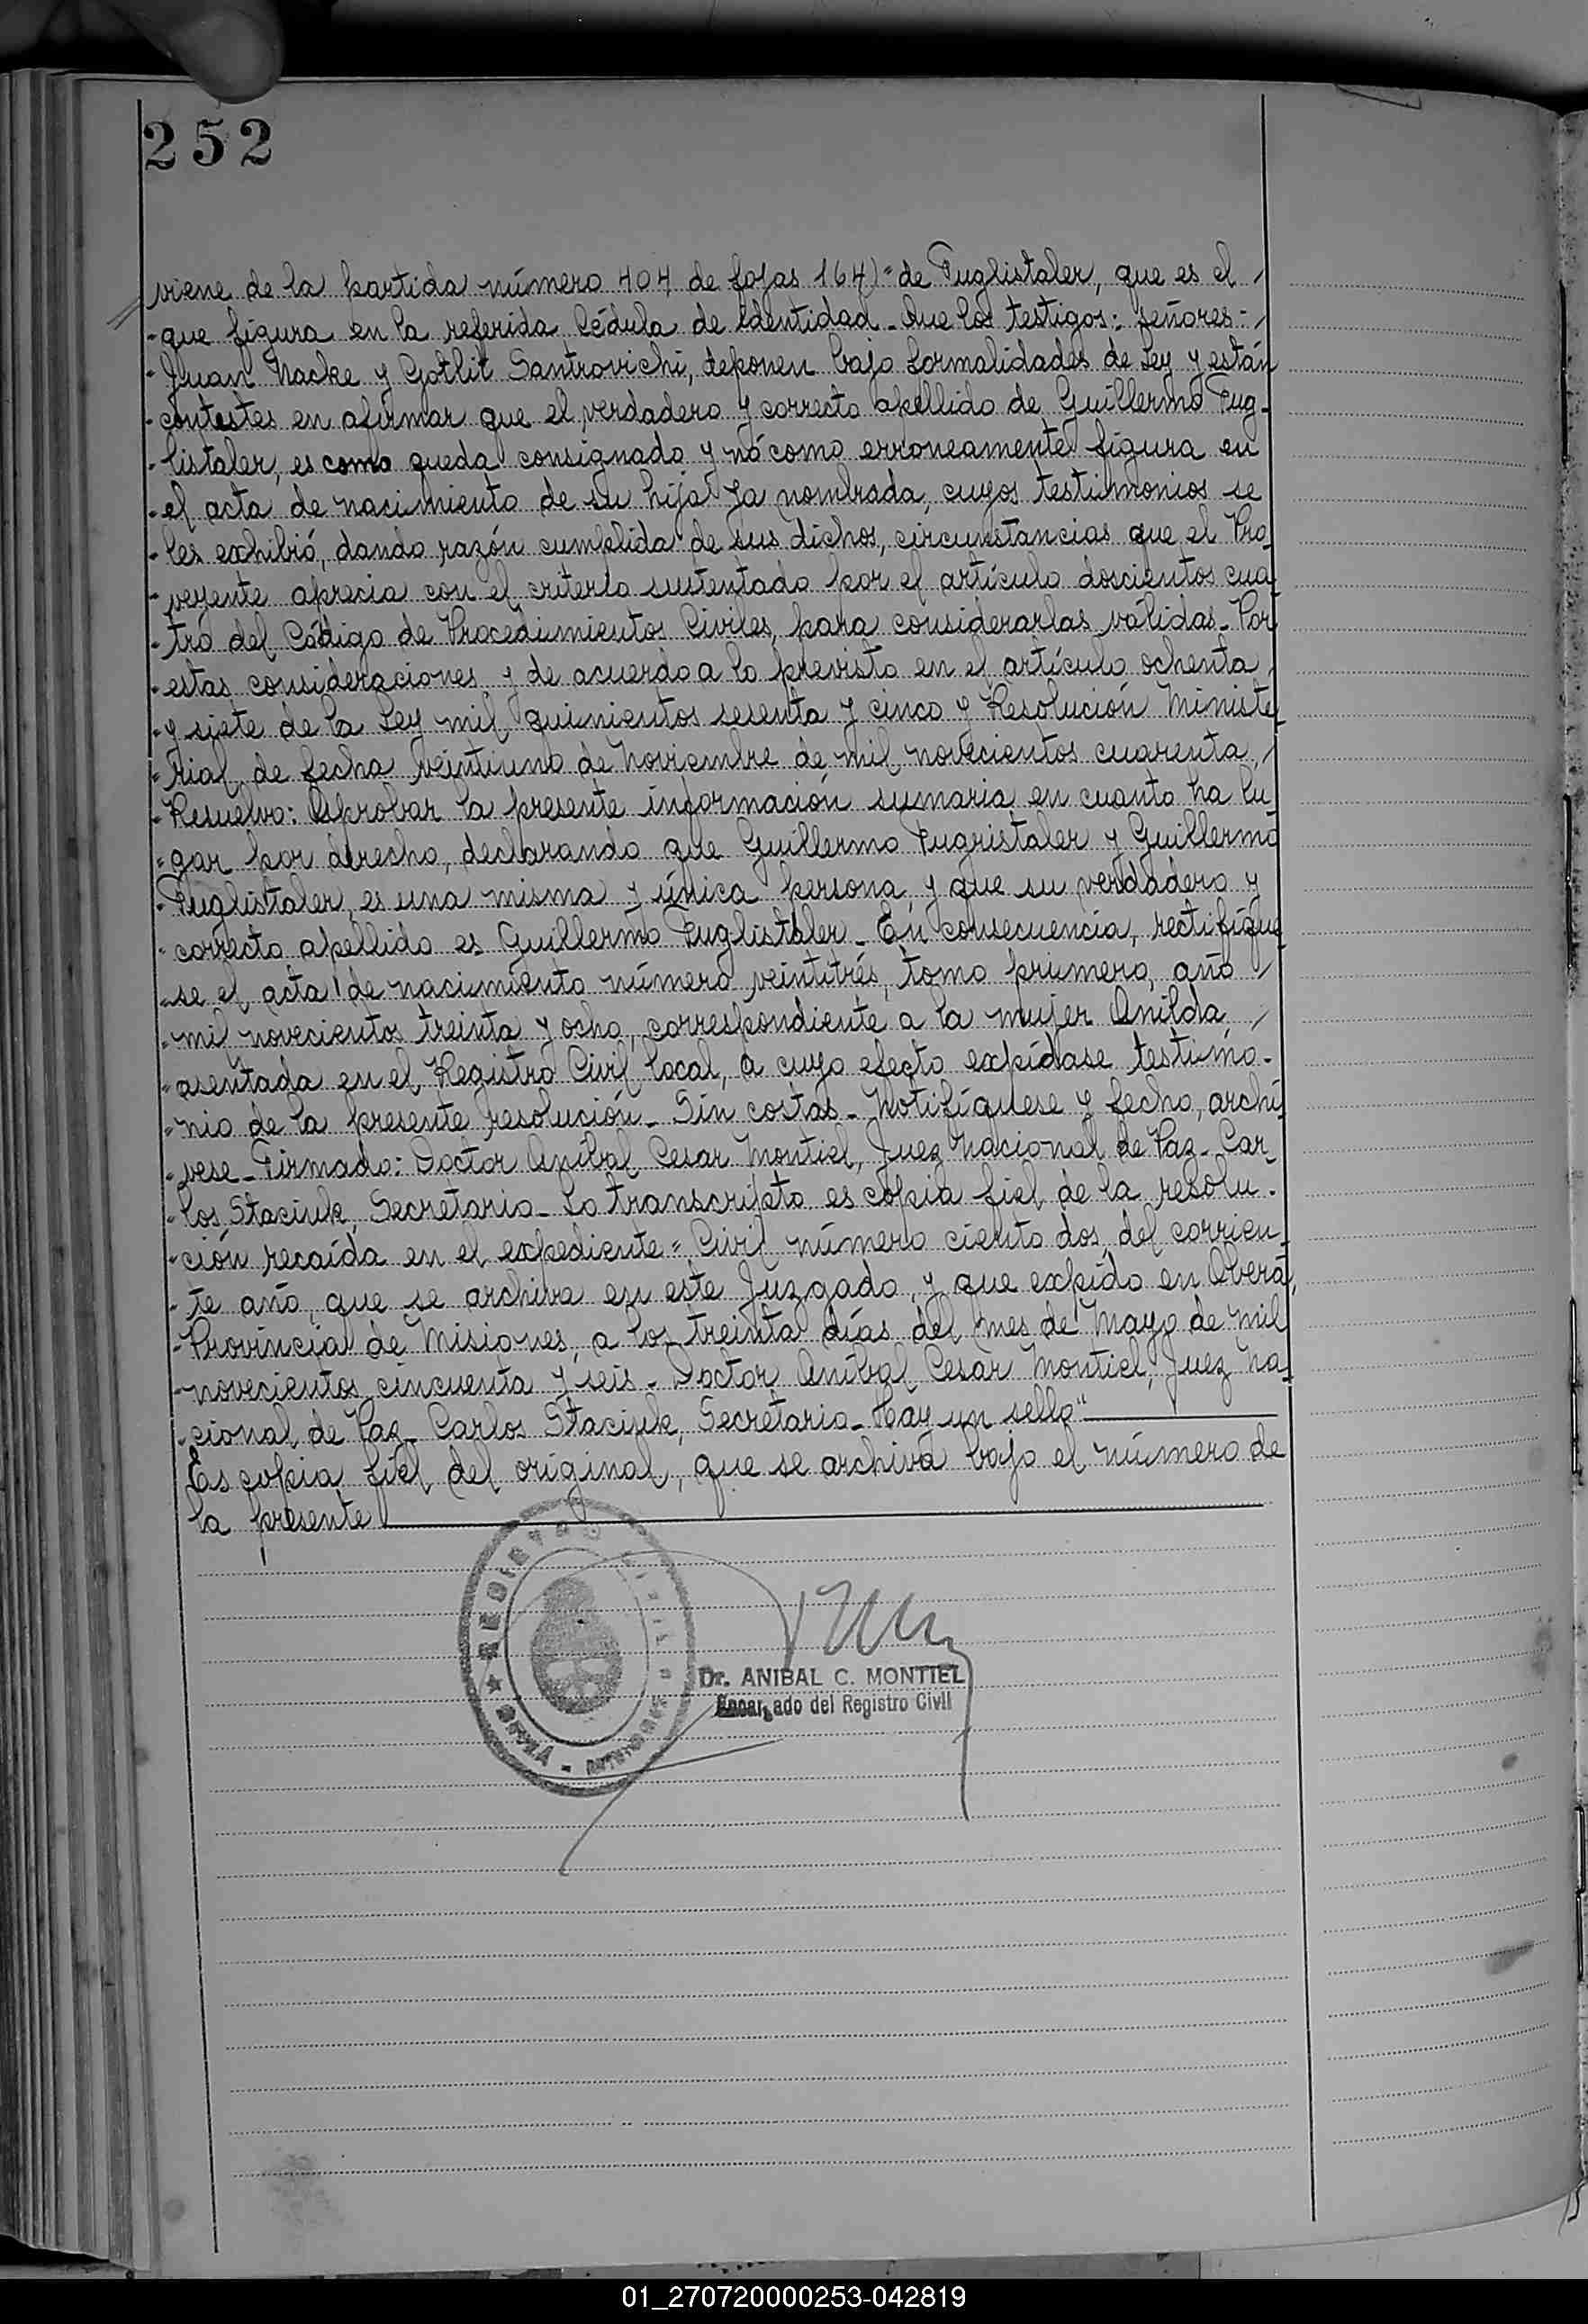 252
viene de la partida número 404 de fojas 164)="de Fuglistaler, que es el /
-que figura en la referida Cédula de Identidad_Que los testigos: señores:-/
-Juan Nacke y Gotlit Santrovichi, deponen bajo formalidades de Ley y están
-contestes en afirmar que el verdadero y correcto apellido de Guillermo Fug-
-listaler, es como queda consignado y nó como erróneamente figura en
-el acta de nacimiento de su hija la nombrada, cuyos testimonios se
-les exhibió, dando razón cumplida de sus dichos, circunstancias que el Pro-
-veyente aprecia con el criterio sustentado por el artículo doscientos cua-
-tro del Código de Procedimientos Civiles, para considerarlas válidas_Por
-estas consideraciones y de acuerdo a lo previsto en el artículo ochenta
-y siete de la Ley mil quinientos sesenta y cinco y Resolución Ministe-
-rial de fecha veintiuno de Noviembre de mil novecientos cuarenta, /
-Resuelvo: Aprobar la presente información sumaria en cuanto ha lu-
-gar por derecho, declarando que Guillermo Fugristaler y Guillermo
-Fuglistaler, es una misma y única persona y que su verdadero y
-correcto apellido es Guillermo Fuglistaler_En consecuencia, rectifíque-
-se el acta de nacimiento número veintitrés, tomo primero, año /
-mil novecientos treinta y ocho, correspondiente a la mujer Anilda, /
-asentada en el Registro Civil local, a cuyo efecto expídase testimo-
-nio de la presente resolución_Sin costas_Notifíquese y fecho, archí-
-vese_Firmado: Doctor Aníbal Cesar Montiel, Juez Nacional de Paz_Car-
-los Staciuk, Secretario_Lo transcripto es copia fiel de la resolu-
-ción recaída en el expediente=Civil número ciento dos, del corrien-
-te año, que se archiva en este Juzgado, y que expido en Oberá,
-Provincia de Misiones, a los treinta días del mes de Mayo de mil
-novecientos cincuenta y seis_Doctor Aníbal Cesar Montiel, Juez Na-
-cional de Paz_Carlos Staciuk, Secretario_Hay un sello"
Es copia fiel del original, que se archiva bajo el número de
la presente
Dr. ANIBAL C. MONTIEL
Encargado del Registro Civil
01_270720000253-042819